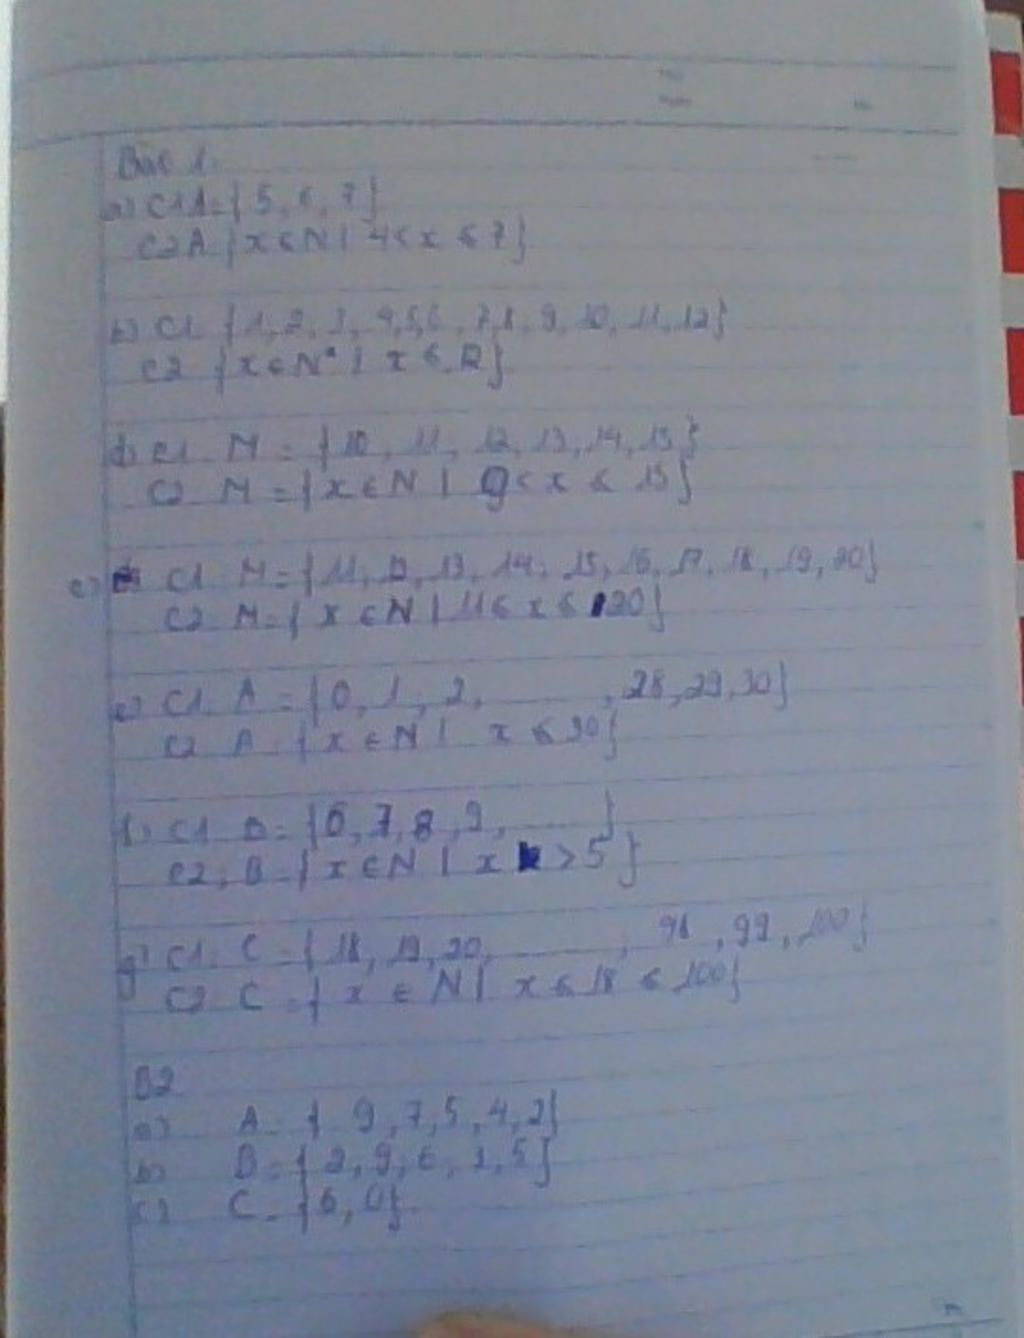 Bài 1
a) C1 A = { 5, 6, 7 }
C2 A { x ∈ N | 4 < x ≤ 7 }
b) C1 { 1, 2, 3, 4, 5, 6, 7, 8, 9, 10, 11, 12 }
C2 { x ∈ N* | x ≤ 12 }
d) C1 M = { 10, 11, 12, 13, 14, 15 }
C2 M = { x ∈ N | 9 < x ≤ 15 }
c) C1 M = { 11, 12, 13, 14, 15, 16, 17, 18, 19, 20 }
C2 M = { x ∈ N | 11 ≤ x ≤ 20 }
e) C1 A = { 0, 1, 2, ......, 28, 29, 30 }
C2 A { x ∈ N | x ≤ 30 }
f) C1 B = { 6, 7, 8, 9, ...... }
C2, B = { x ∈ N | x > 5 }
g) C1. C = { 18, 19, 20, ......, 98, 99, 100 }
C2 C = { x ∈ N | x ≤ 18 ≤ 100 }
B2
a) A = { 9, 7, 5, 4, 2 }
b) B = { 2, 9, 6, 1, 5 }
c) C = { 6, 0 }